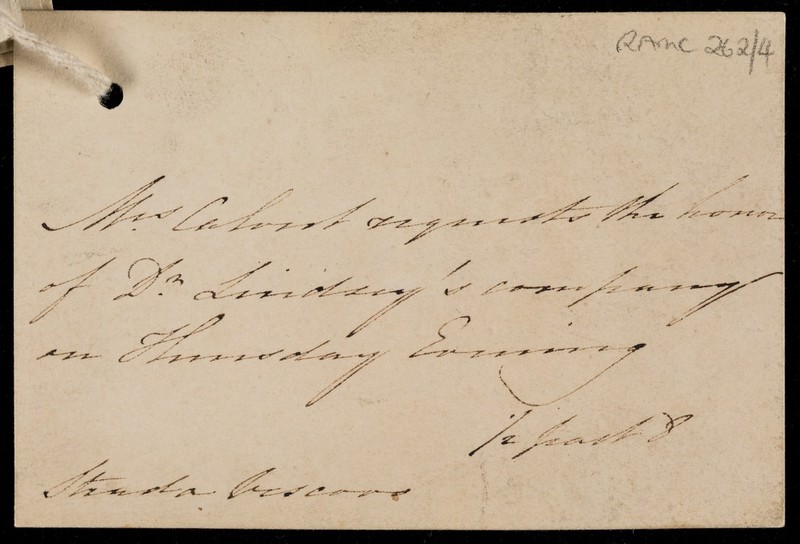 RAMC 262/4
Mrs. Calvert requests the honor
of Dr. Lindsay's company
on Thursday Evening
1/2 past 8
Strada Vescovo